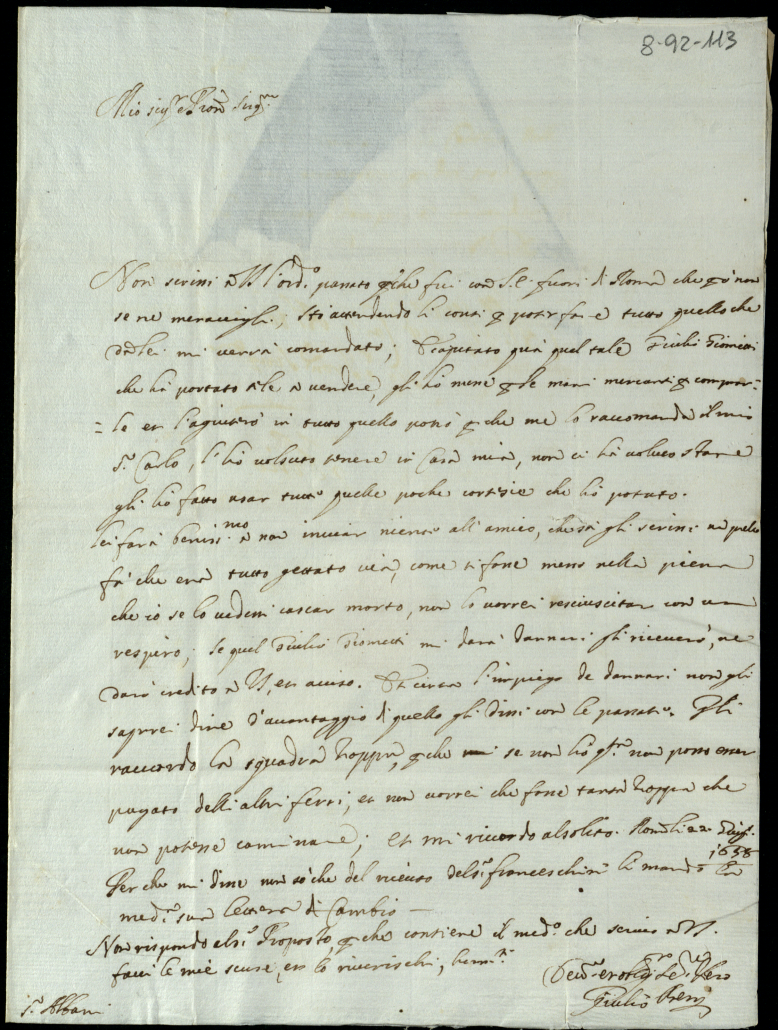 8-92-113
Mio sigr e Pron Singre
Non scrissi a V.S. l'ordo passato che fui con S.E. fuori di Roma che non
se ne meravigli; sto attendendo li conti potir far e tutto quello che
da lei mi verrà comandato; È capitato quà quel tale Giulio Giometti
che hà portato tele a vendere, gli hò mene mani mercanti comprar=
=le et l'agiuterò in tutto quello potrò che me lo raccomanda il mio
Sr Carlo, l'hò volsuto tenere in Casa mia, non ci hà voluto stare
gli hò fatto usar tutte quelle poche cortesie che hò potuto.
lei farà beniss.mo a non inviar niente all'amico, che sà gli scrissi
fà che era tutto gettato via, come si fone meno nella piena
che io se lo vedessi cascar morto, non lo vorrei resciuscitar con un
respiro; se quel Giulio Giometti mi darà dannari gli riceverò, ne
darò credito a V.S. et avviso. Et circa l'impiego de dannari non gli
saprrei dire d'avantaggio di quello gli dissi con le passate. Gli
raccordo la squadra zoppa, che se non hò non posso esser
pagato delli altri ferri, et non vorrei che fosse tanto zoppa che
non potesse caminare; et mi ricordo al solito. Roma li 22 Giugo
1658
Perche mi disse non sò che del ricevuto del Sr franceschini li mando la
meda sua lettera di Cambio —
Non rispondo al Sr Proposto, che contiene il medo che scrivo a V.S.
facci le mie scuse, et lo riverischi,
Sr Albani
Giulio